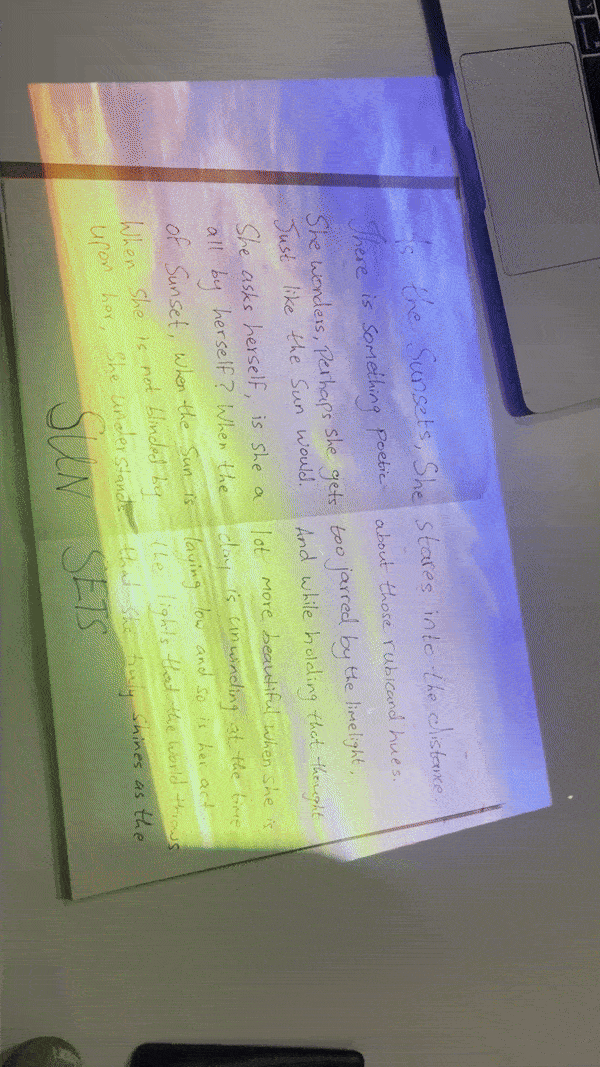 Is the Sunsets, She stares into the distance.
There is something poetic about those rubicand hues.
She wonders, Perhaps she gets too jarred by the limelight.
Just like the Sun would. And while holding that thought
She asks herself, is she a lot more beautiful when she is
all by herself? When the day is unwinding at the time
of Sunset, when the Sun is laying low and so is her act.
When She is not blinded by the lights that the world throws
upon her, She understands that she truly shines as the
SUN SETS